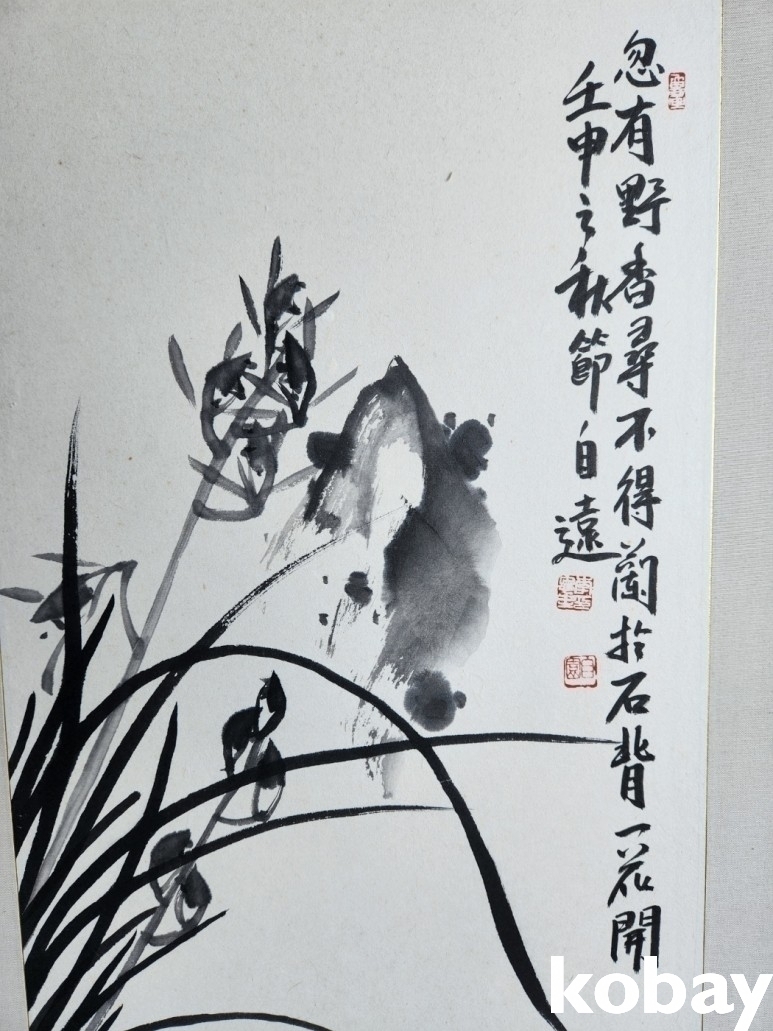 忽有野香尋不得蘭於石背一花開
壬申之秋節自遠
kobay